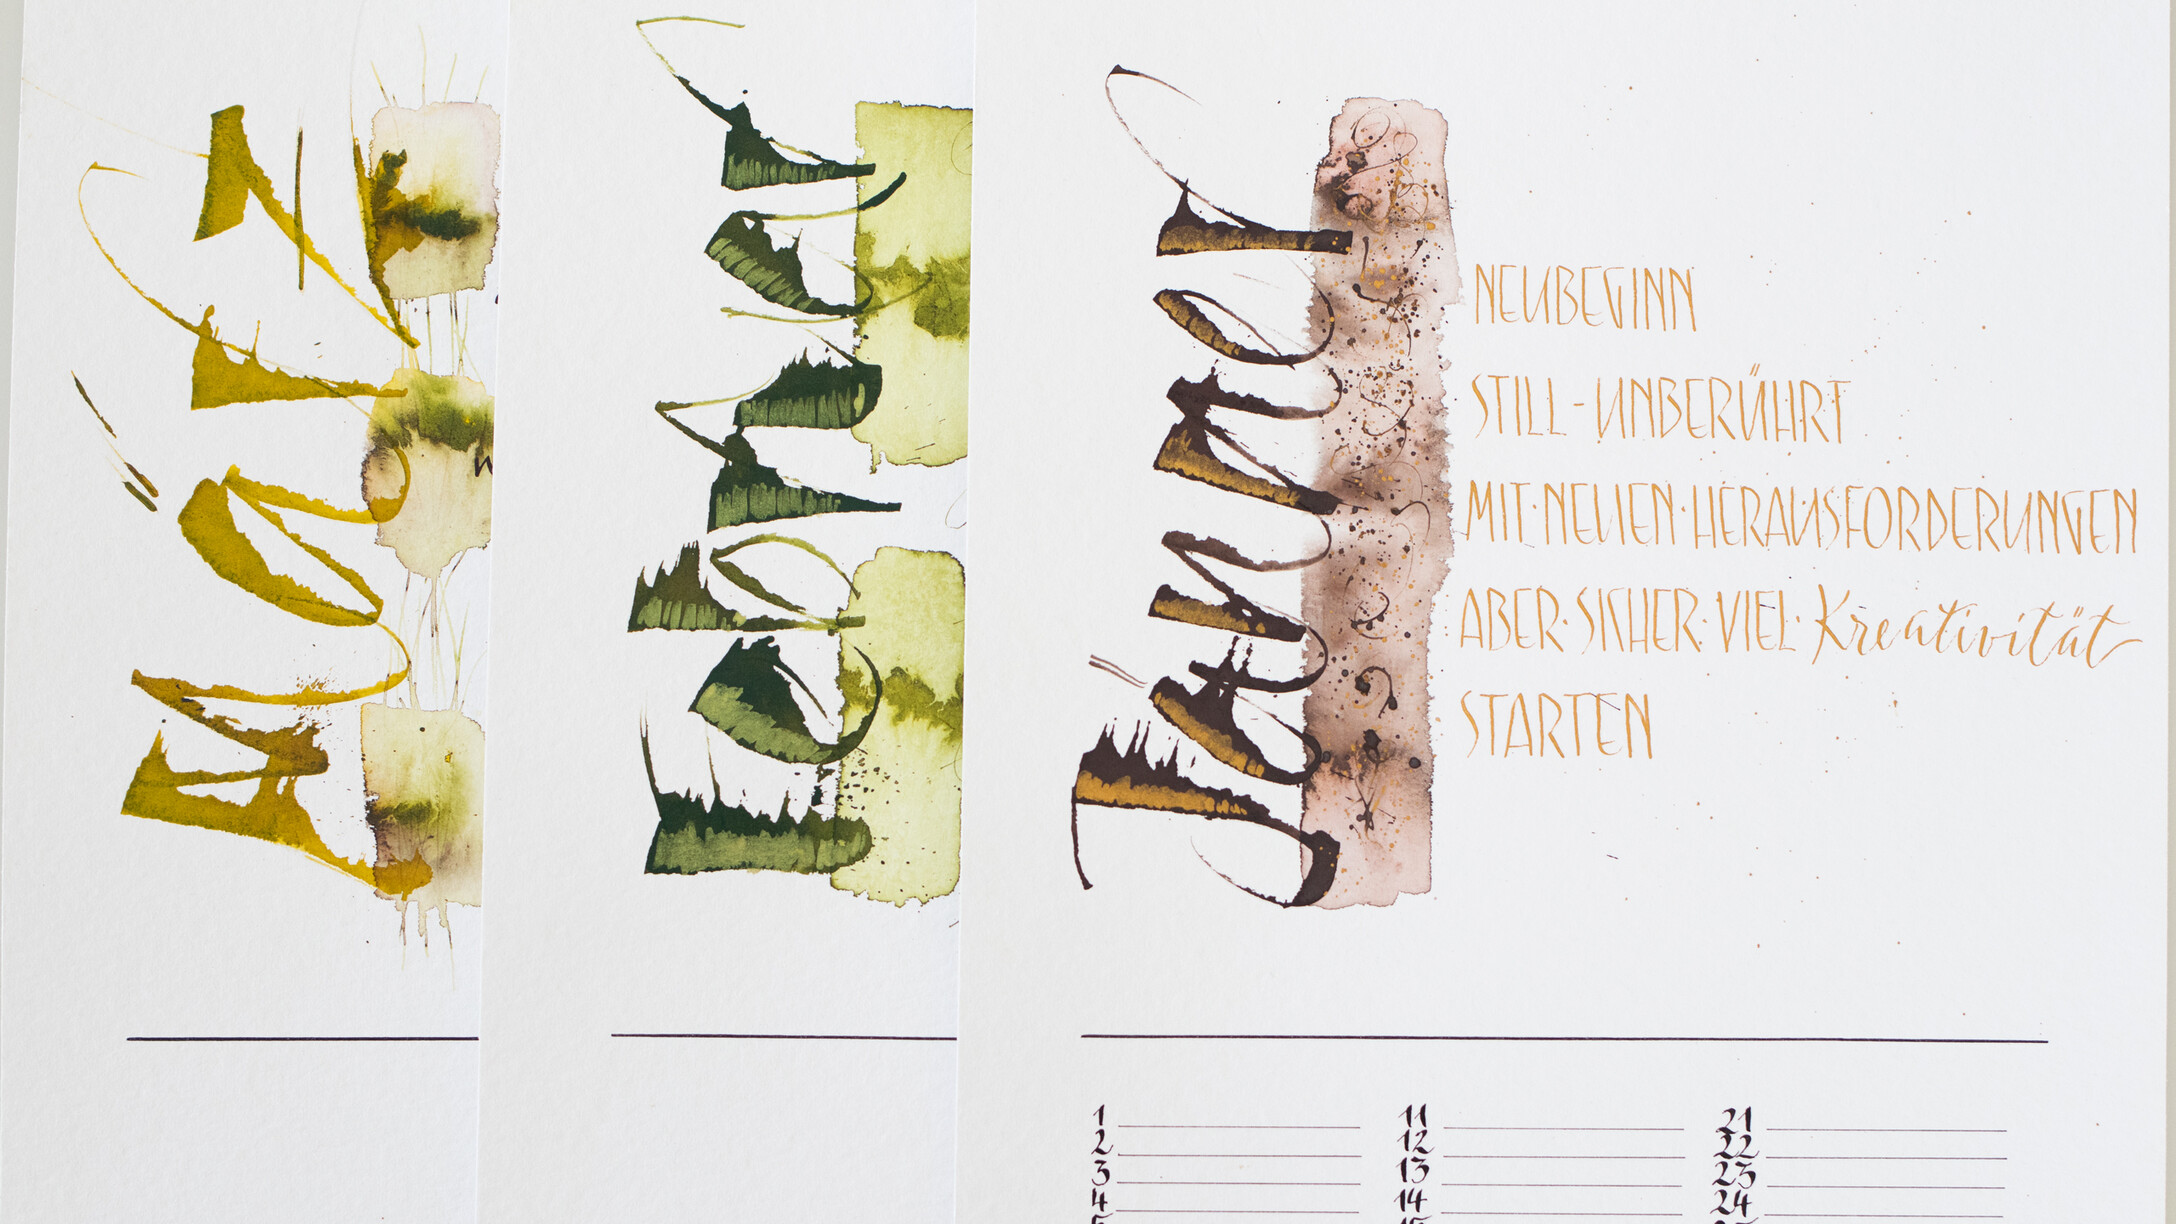 März
Februar
Jänner
NEUBEGINN
STILL-UNBERÜHRT
MIT·NEUEN·HERAUSFORDERUNGEN
ABER·SICHER·VIEL·Kreativität
STARTEN
1
2
3
4
11
12
13
14
21
22
23
24